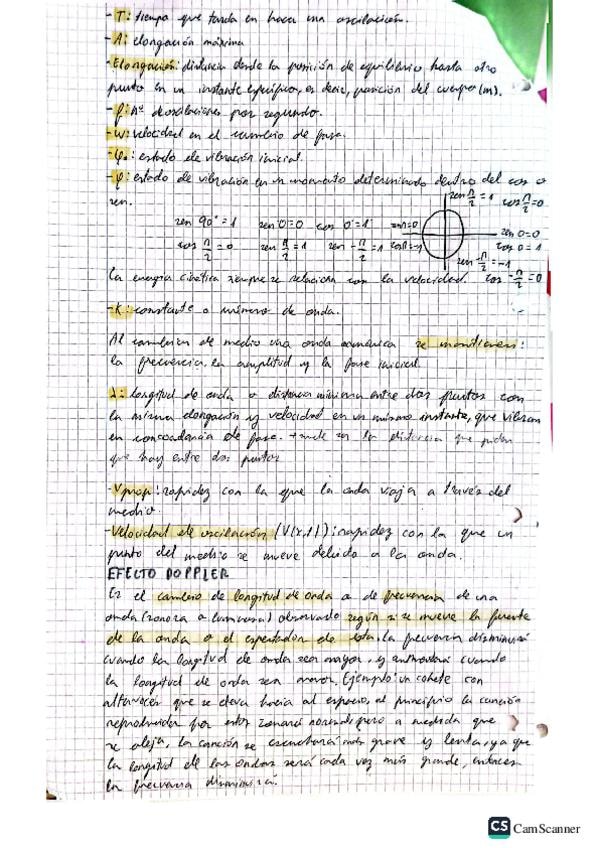 - T: tiempo que tarda en hacer una oscilación.
- A: elongación máxima
- Elongación: distancia desde la posición de equilibrio hasta otro
punto en un instante específico, es decir, posición del cuerpo (m).
- f: nº de oscilaciones por segundo.
- w: velocidad en el cambio de fase.
- φ₀: estado de vibración inicial.
- φ: estado de vibración en un momento determinado dentro del cos o
sen.
sen 90° = 1 sen 0 = 0 cos 0 = 1
cos π/2 = 0 sen π/2 = 1 sen -π/2 = 1
sen π/2 = 1 cos π/2 = 0
sen π = 0 cos π = -1
sen 0 = 0 cos 0 = 1
sen -π/2 = -1 cos -π/2 = 0
La energía cinética siempre se relaciona con la velocidad.
- K: constante o número de onda.
Al cambiar de medio una onda armónica se mantienen:
la frecuencia, la amplitud y la fase inicial.
λ: longitud de onda o distancia mínima entre dos puntos con
la misma elongación y velocidad en un mismo instante, que vibran
en concordancia de fase. + suele ser la distancia que piden
que hay entre dos puntos
- Vprop: rapidez con la que la onda viaja a través del
medio.
- Velocidad de oscilación (V(x,t)): rapidez con la que un
punto del medio se mueve debido a la onda.
EFECTO DOPPLER
Es el cambio de longitud de onda o de frecuencia de una
onda (sonora o luminosa) observado según si se mueve la fuente
de la onda o el espectador de esta. La frecuencia disminuirá
cuando la longitud de onda sea mayor, y aumentará cuando
la longitud de onda sea menor. Ejemplo: un cohete con
altavoces que se eleva hacia al espacio, al principio la canción
reproducida por estos sonará normal, pero a medida que
se aleja, la canción se escuchará más grave y lenta, ya que
la longitud de las ondas será cada vez más grande, entonces
la frecuencia disminuirá.
CS CamScanner